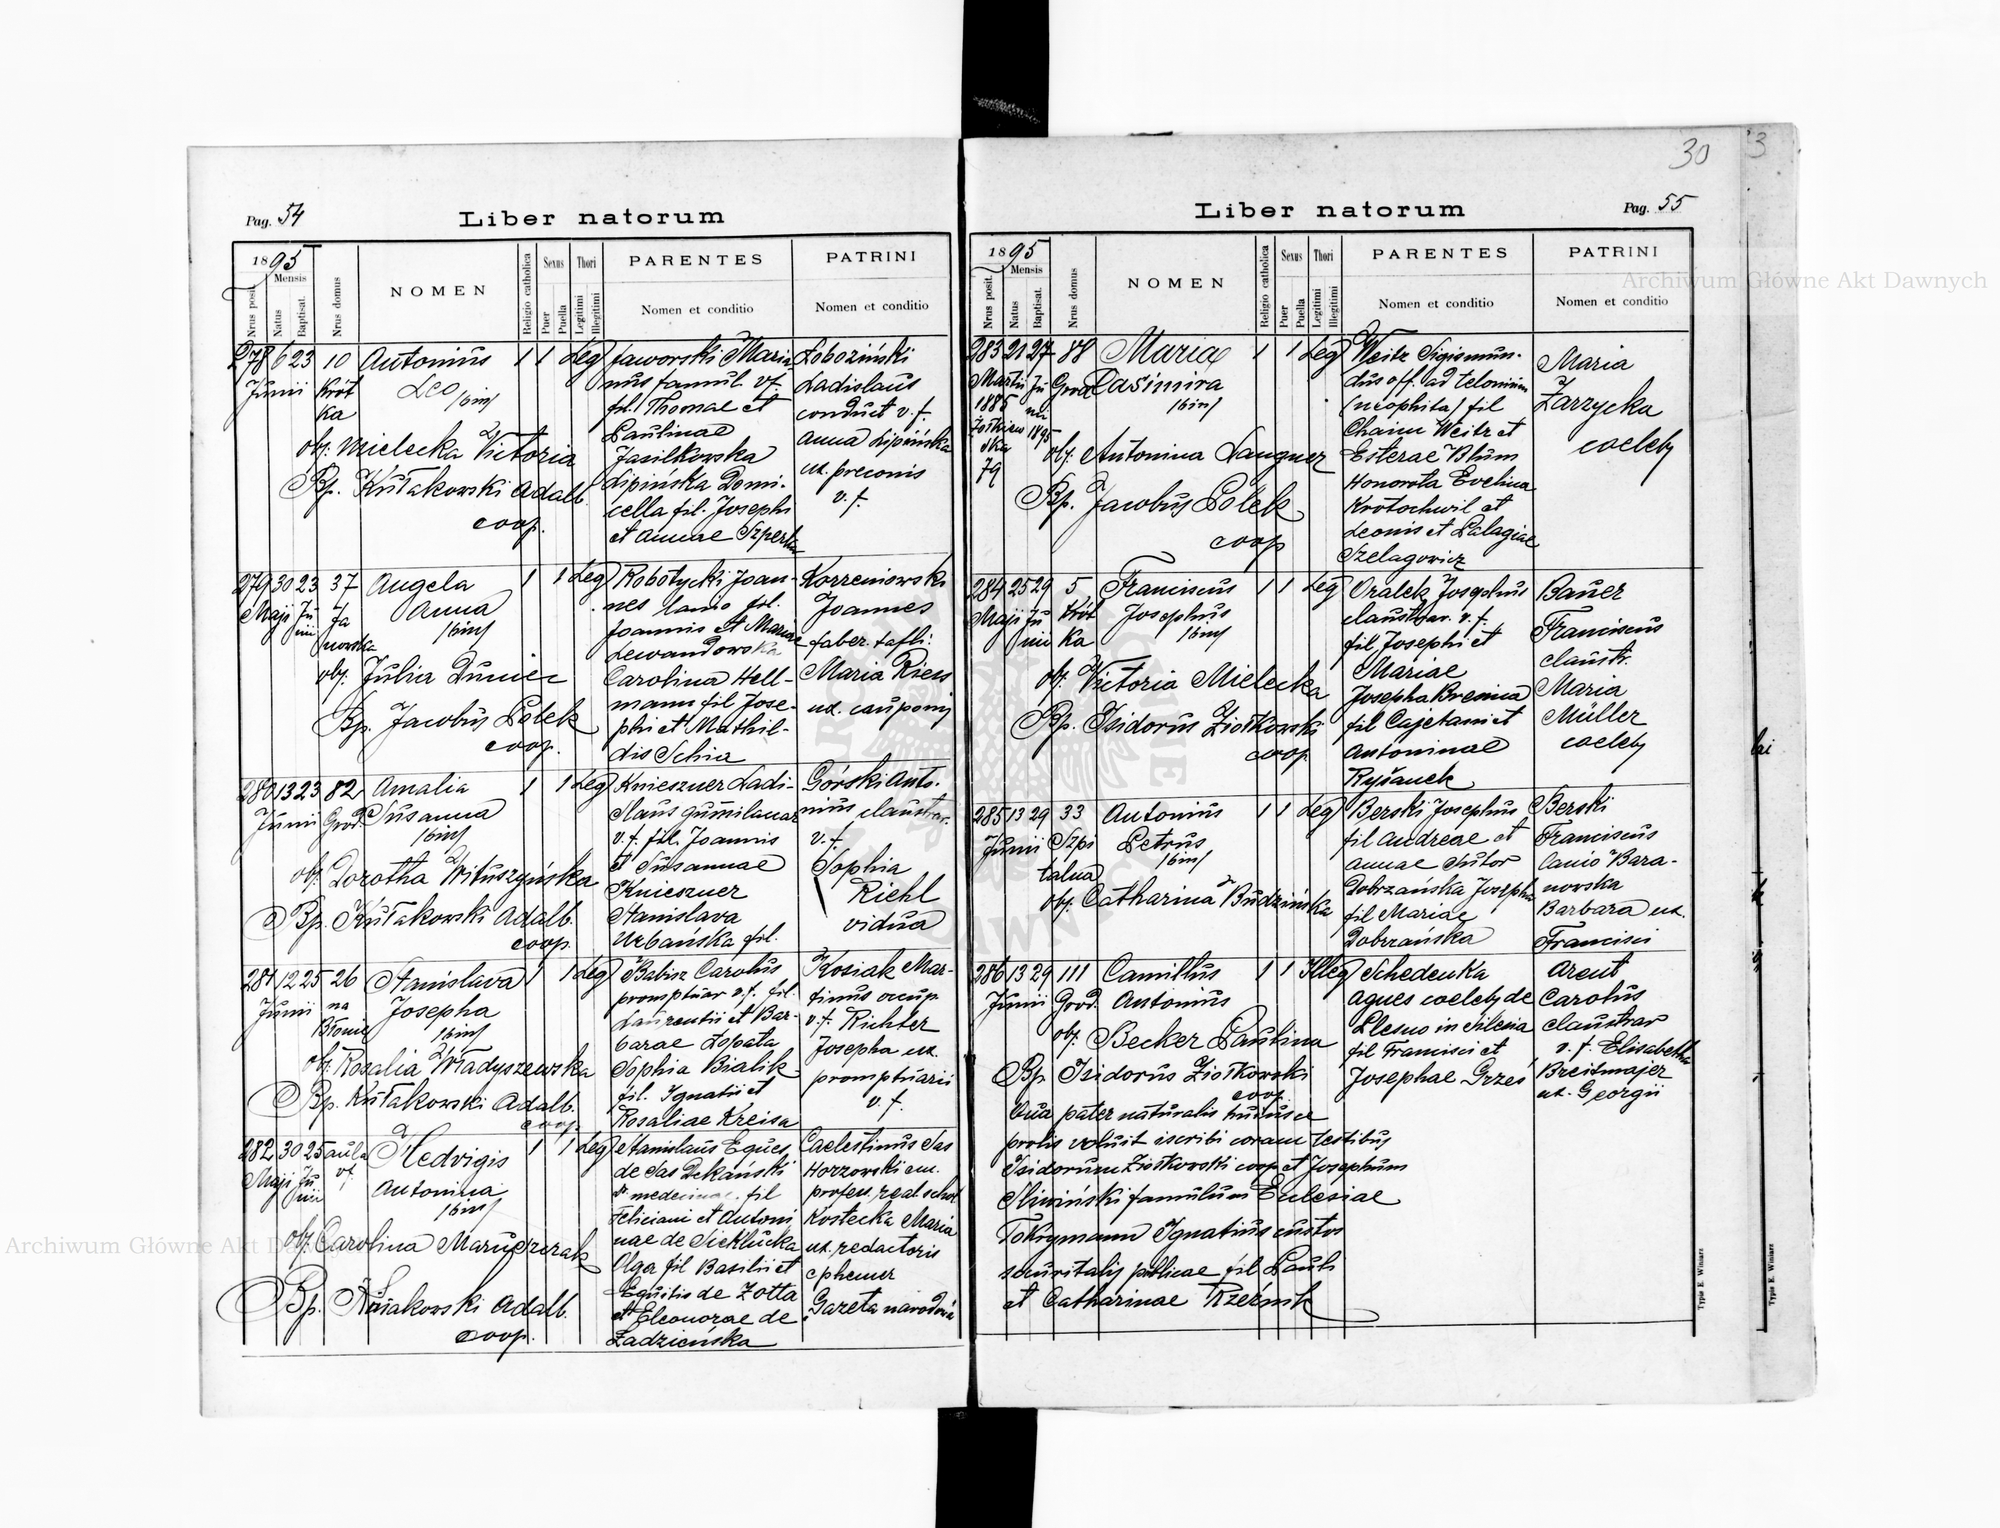 30
3
Pag. 54
Liber natorum
1895
Mensis
Nrus posit.
Natus
Baptisat.
Nrus domus
NOMEN
Religio catholica
Sexus
Puer
Puella
Thori
Legitimi
Illegitimi
PARENTES
Nomen et conditio
PATRINI
Nomen et conditio
278 6 23 10 Antonius 1 1 Leg
Junii Król
ka
Leo
/bini/
obs. Mielecka Victoria
Bp. Kułakowski Adalb.
coop.
Jaworski Maria-
nus famul. v.f.
fil. Thomae et
Paulinae
Jasilkowska
Lipińska Domi-
cella fil. Josephi
et Annae Szperka
Łoboziński
Ladislaus
conduct v.f.
Anna Lipińska
ux. preconis
v.f.
279 30 23 37 Angela 1 1 Leg
Maji Ju
nii
Ja
nowska
Anna
/bini/
obs. Julia Duniec
Bp. Jacobus Polek
coop.
Robotycki Joan-
nes lanio fil.
Joannis et Mariae
Lewandowska
Carolina Hell-
mann fil Jose-
phi et Mathil-
dis Schia
Korzeniowski
Joannes
faber. tafli:
Maria Riess
ux. cauponis
280 13 23 82 Amalia 1 1 Leg
Junii Grod.
Susanna
/bini/
obs. Dorotha Wituszyńska
Bp. Kułakowski Adalb.
coop.
Knieszner Ladi-
slaus gumilanar
v.f. fil. Joannis
et Susannae
Knieszner
Stanislava
Urbańska fil.
Górski Anto-
nius claustrar.
v.f.
Sophia
Riehl
vidua
281 12 25 26 Stanislava 1 1 Leg
Junii na
Błonie
Josepha
/bini/
obs. Rosalia Władyszewska
Bp. Kułakowski Adalb.
coop.
Babisz Carolus
promptuar v.f. fil.
Laurentii et Bar-
barae Łopata
Sophia Bialik
fil. Ignatii et
Rosaliae Kreisa
Kosiak Mar-
tinus occup.
v.f. Richter
Josepha ux.
promptuarii
v.f.
282 30 25 aula Hedvigis 1 1 Leg
Maji Ju
nii
v.f.
Antonina
/bini/
obs. Carolina Maruszczak
Bp. Kułakowski Adalb.
coop.
Stanislaus Eques
de Sas Dekański
Dr. medicinae fil
Feliciani et Antoni
nae de Siekłucka
Olga fil Basilii et
Equitis de Zotta
et Eleonorae de
Zadzieńska
Caelestinus Sas
Horzowski em.
profess. real schol
Kostecka Maria
ux. redactoris
ephemer
Gazeta narodowa
Pag. 55
Liber natorum
1895
Mensis
Nrus posit.
Natus
Baptisat.
Nrus domus
NOMEN
Religio catholica
Sexus
Puer
Puella
Thori
Legitimi
Illegitimi
PARENTES
Nomen et conditio
PATRINI
Nomen et conditio
283 21 27 88 Maria 1 1 Leg
Martii
1885
Żółkiew
ska
79
Ju
nii
1895
Grod
Casimira
/bini/
obs. Antonina Langner
Bp. Jacobus Polek
coop
Weitz Sigismun-
dus off. ad telonium
(neophita) fil
Chaim Weitz et
Esterae Blum
Honorata Evelina
Krotochwil et
Leonis et Palagiae
Szelagowicz
Maria
Zarzycka
coelebs
284 25 29 5 Franciscus 1 1 Leg
Maji Ju
nii
Król
ka
Josephus
/bini/
obs. Victoria Mielecka
Bp. Isidorus Ziołkowski
coop
Oralek Josephus
claustrar. v.f.
fil Josephi et
Mariae
Josepha Brenina
fil Cajetani et
Antoninae
Ryšanek
Bauer
Franciscus
claustr.
Maria
Müller
coelebs
285 13 29 33 Antonius 1 1 Leg
Junii Szpi
talna
Petrus
/bini/
obs. Catharina Budzińska
Berski Josephus
fil Andreae et
Annae sutor
Dobrzańska Josepha
fil Mariae
Dobrzańska
Berski
Franciscus
lanio Bara-
nowska
Barbara ux.
Francisci
286 13 29 111 Camillus 1 1 Illeg
Junii Grod. Antonius
obs. Becker Paulina
Bp Isidorus Ziołkowski
coop.
Schedenka
Agnes coelebs de
Plesno in Silesia
fil Francisci et
Josephae Grzes
Arent
Carolus
claustrar
v.f. Elisabetha
Breitmajer
ux. Georgii
Qua pater naturalis hujusce
prolis voluit iscribi coram testibus
Isidorum Ziołkowski coop et Josephum
Śliwiński famulum Eclesiae
Tokrymann Ignatius custos
securitatis publicae fil Pauli
et Catharinae Rzeźnik
Typis E. Winiarz
Typis E. Winiarz
Archiwum Główne Akt Dawnych
Archiwum Główne Akt Dawnych